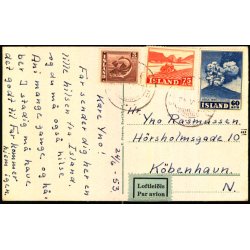 24/6-53
Kære Yno!
Før sender dig her en
lille hilsen fra Island!
og du må også hilse
Ani mange gange og hå-
ber I stadig må have
det godt til Før kommer
hjem igen.
ÍSLAND
5
ÍSLAND
75
ÍSLAND
60
Hr.
Yno Rasmussen.
Hörsholmsgade 10
Köbenhavn.
N.
Loftleiðis
Par Avion